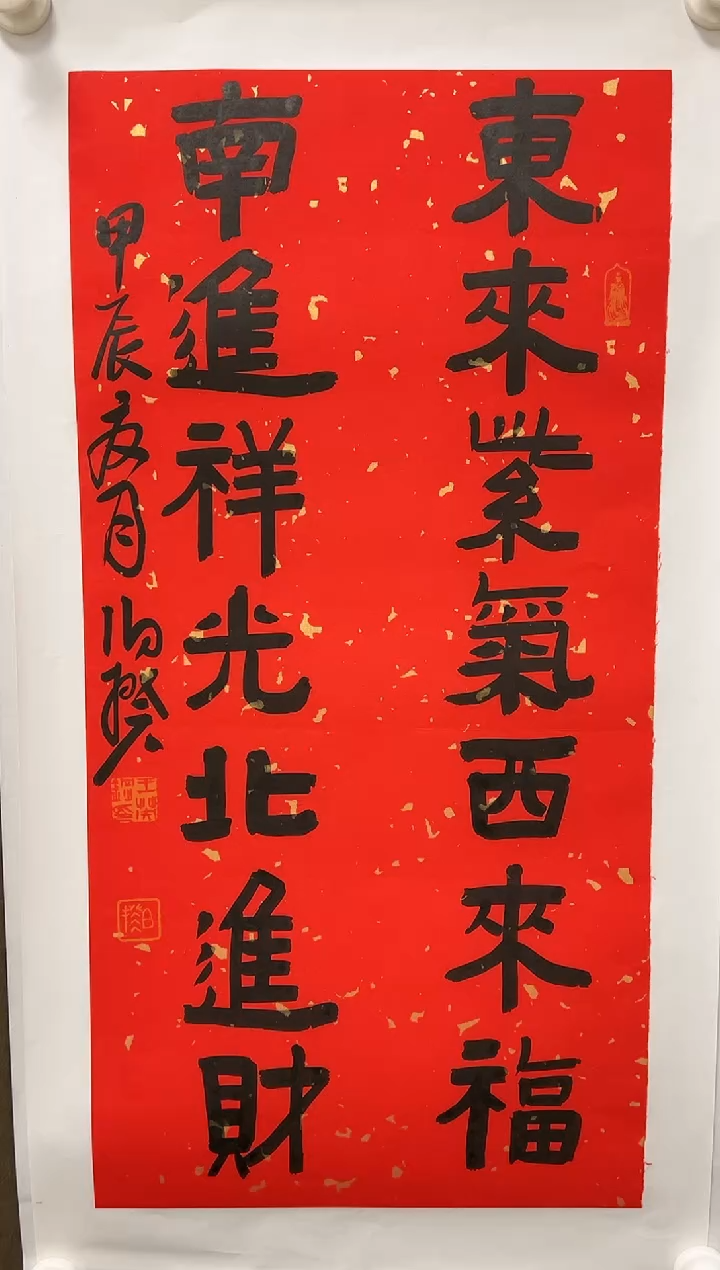 東來紫氣西來福
南進祥光北進財
甲辰夏月伯揆